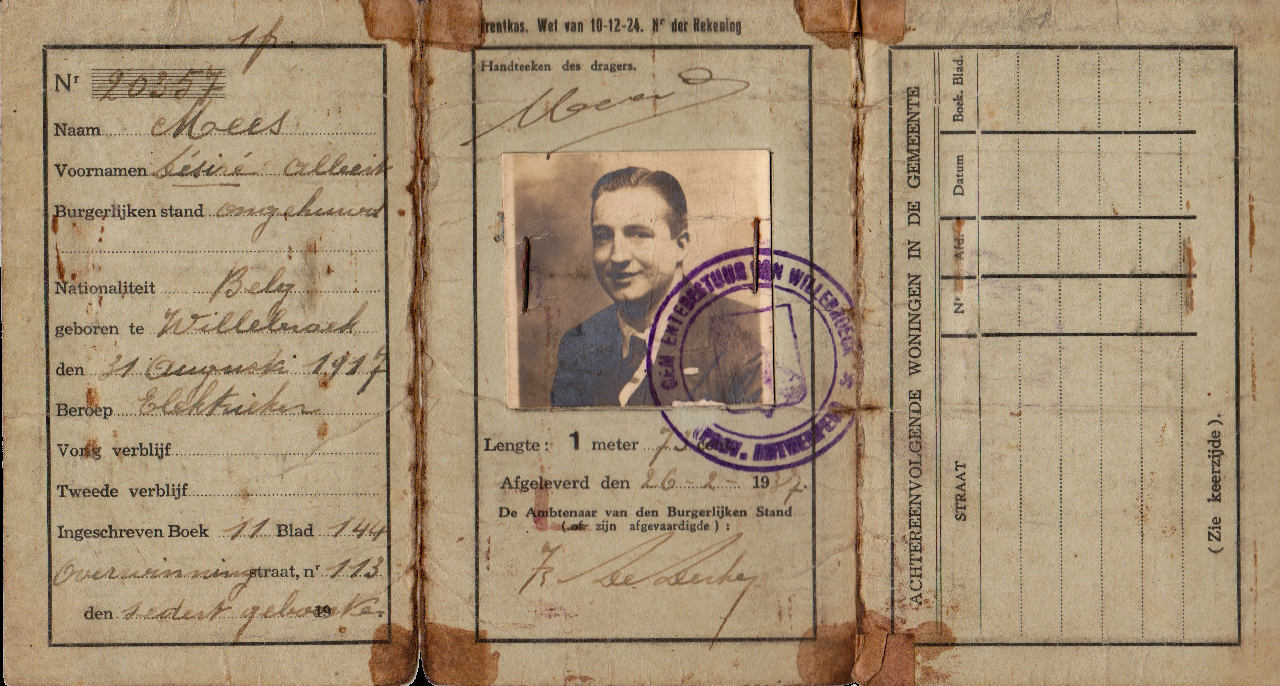 1f.
Nr 20357
Naam Moees
Voornamen Désiré Albert
Burgerlijken stand ongehuwd
Nationaliteit Belg
geboren te Willebroek
den 31 Augusti 1917
Beroep Elektrieker
Vorig verblijf
Tweede verblijf
Ingeschreven Boek 11 Blad 144
Overwinningstraat, nr 113
den sedert geboorte 19
rentkas. Wet van 10-12-24. Nr der Rekening
Handteeken des dragers.
GEMEENTEBESTUUR VAN WILLEBROECK
PROV. ANTWERPEN
Lengte: 1 meter 75 cent.
Afgeleverd den 26-2-1937.
De Ambtenaar van den Burgerlijken Stand
(of zijn afgevaardigde) :
ACHTEREENVOLGENDE WONINGEN IN DE GEMEENTE
STRAAT
Nr
Afd.
Datum
Boek. Blad.
(Zie keerzijde).